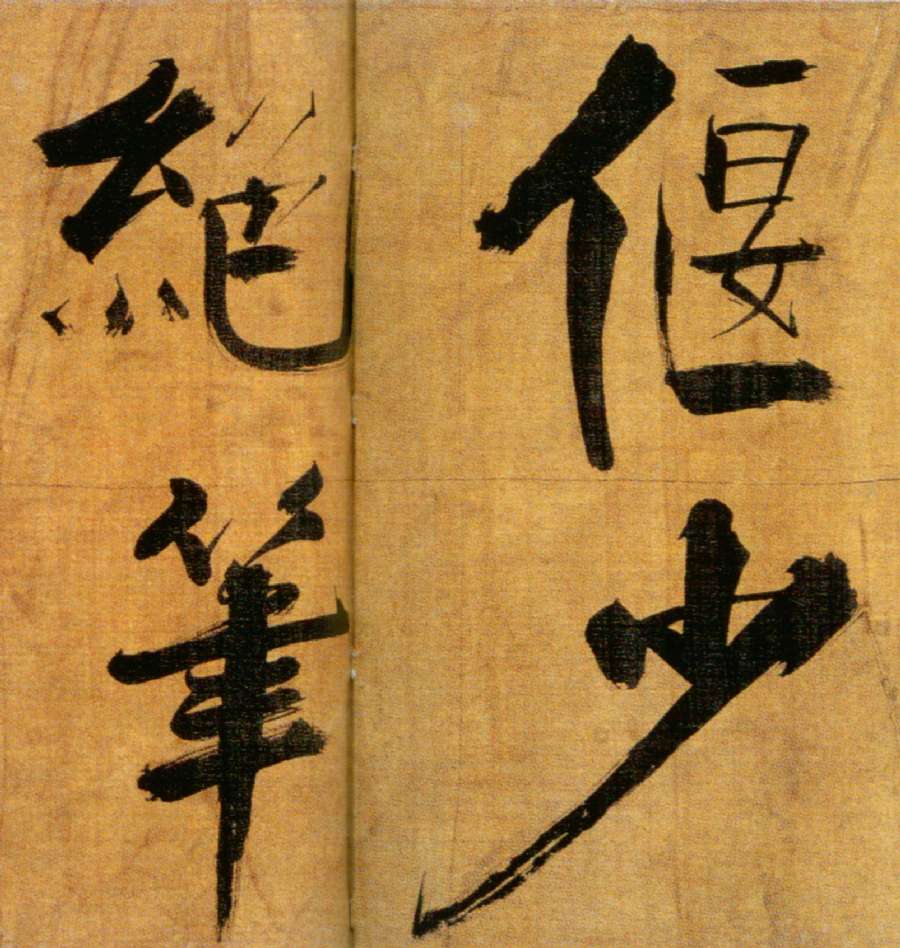 偃少
絕筆